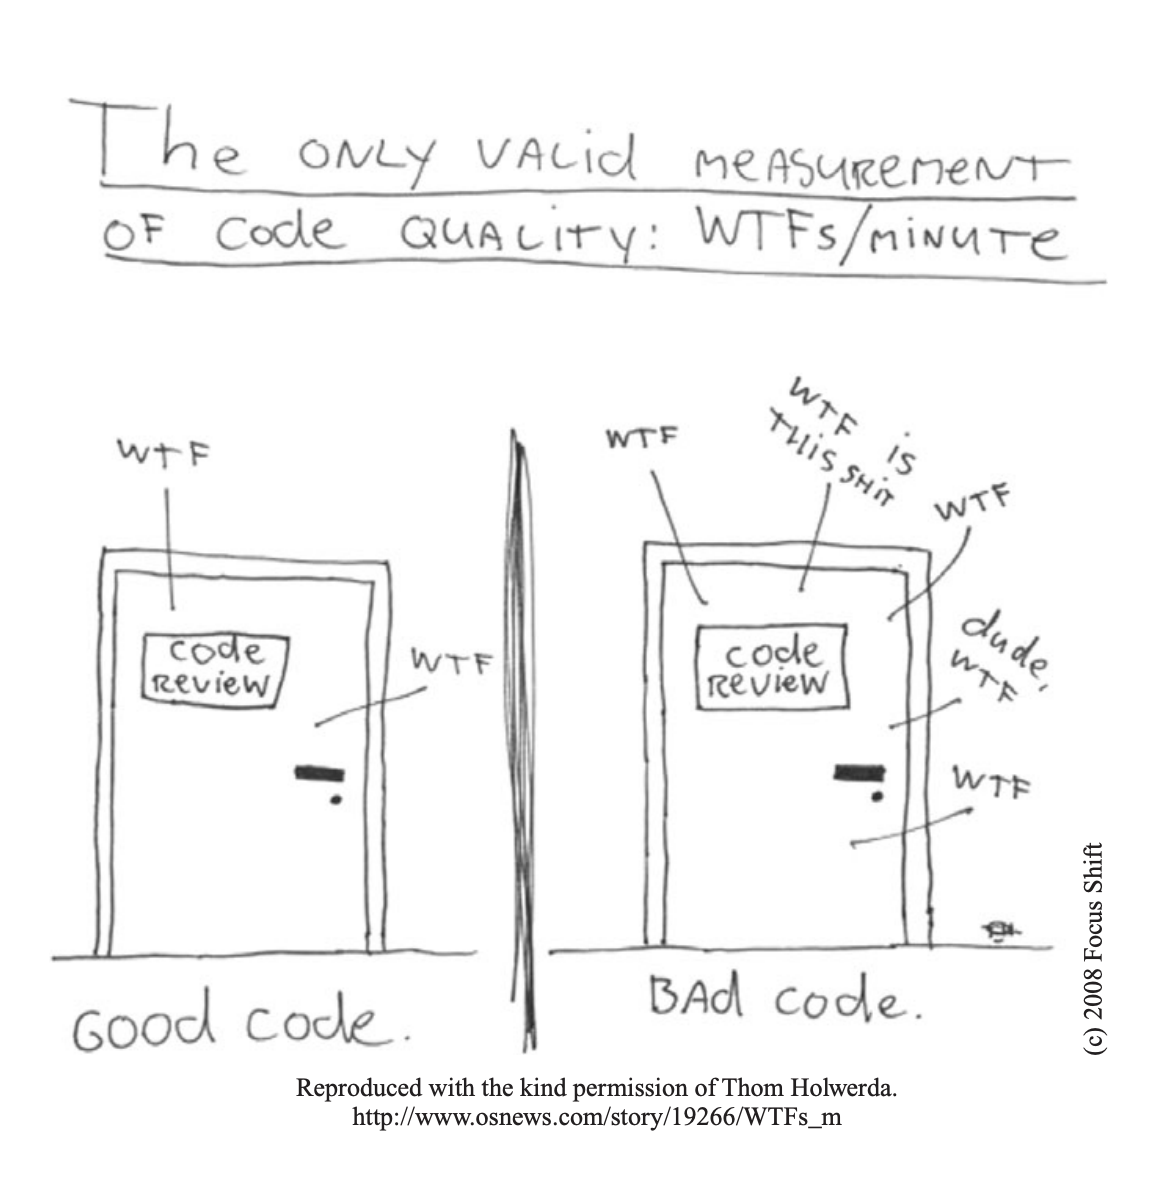 The ONLY VALid MEASUREMENT
OF Code QUALITY: WTFs/MINUTE
WTF
code
REViEW
WTF
GOOD code.
WTF
WTF is
THiS SHiT
WTF
code
REViEW
dude,
WTF
WTF
BAd code.
(c) 2008 Focus Shift
Reproduced with the kind permission of Thom Holwerda.
http://www.osnews.com/story/19266/WTFs_m